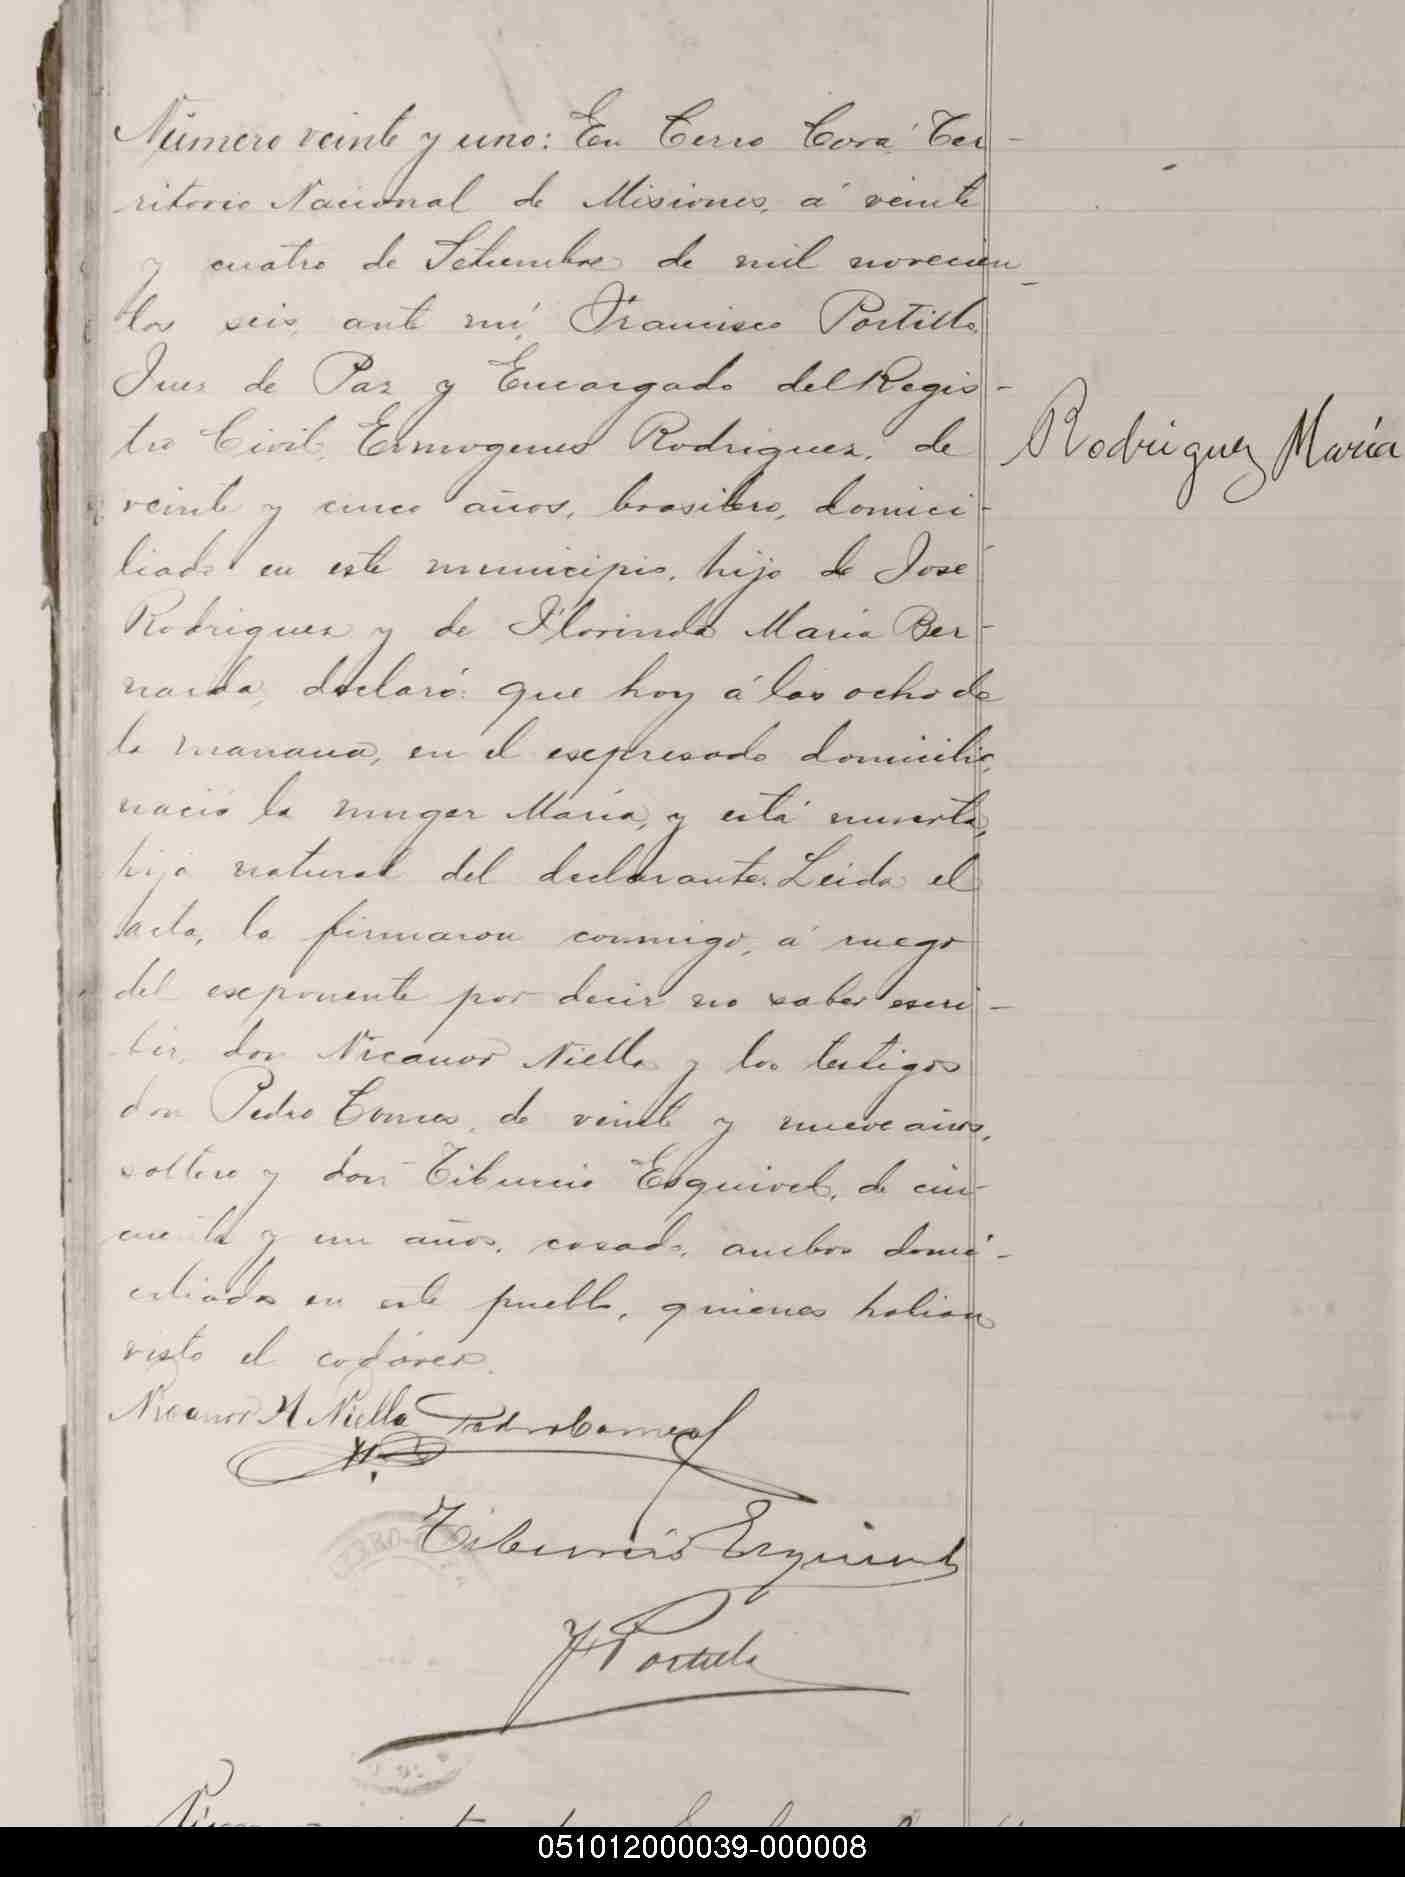 Número veinte y uno: En Cerro Corá Ter-
ritorio Nacional de Misiones, á veinte
y cuatro de Setiembre de mil novecien-
tos seis, ante mí, Francisco Portillo
Juez de Paz y Encargado del Regis-
tro Civil, Ermogenes Rodriguez, de
veinte y cinco años, brasilero, domici-
liado en este municipio, hijo de José
Rodriguez y de Florinda Maria Ber-
narda, declaró: que hoy á las ocho de
la manana, en el espresado domicilio,
nació la muger María, y está muerta,
hija natural del declarante. Leida el
acta, la firmaron conmigo, á ruego
del esponente por decir no saber escri-
bir, don Nicanor Niella y los testigos
don Pedro Gomes, de veinte y nueve años,
soltero y don Tiburcio Esquivel, de cin-
cuenta y un años, casado, ambos domi-
ciliados en este pueblo, quienes habian
visto el cadáver.
Rodriguez María
Nicanor A Niella
Tiburcio Esquivel
F Portillo
051012000039-000008